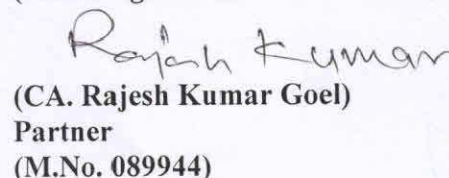 Rajesh Kumar
(CA. Rajesh Kumar Goel)
Partner
(M.No. 089944)